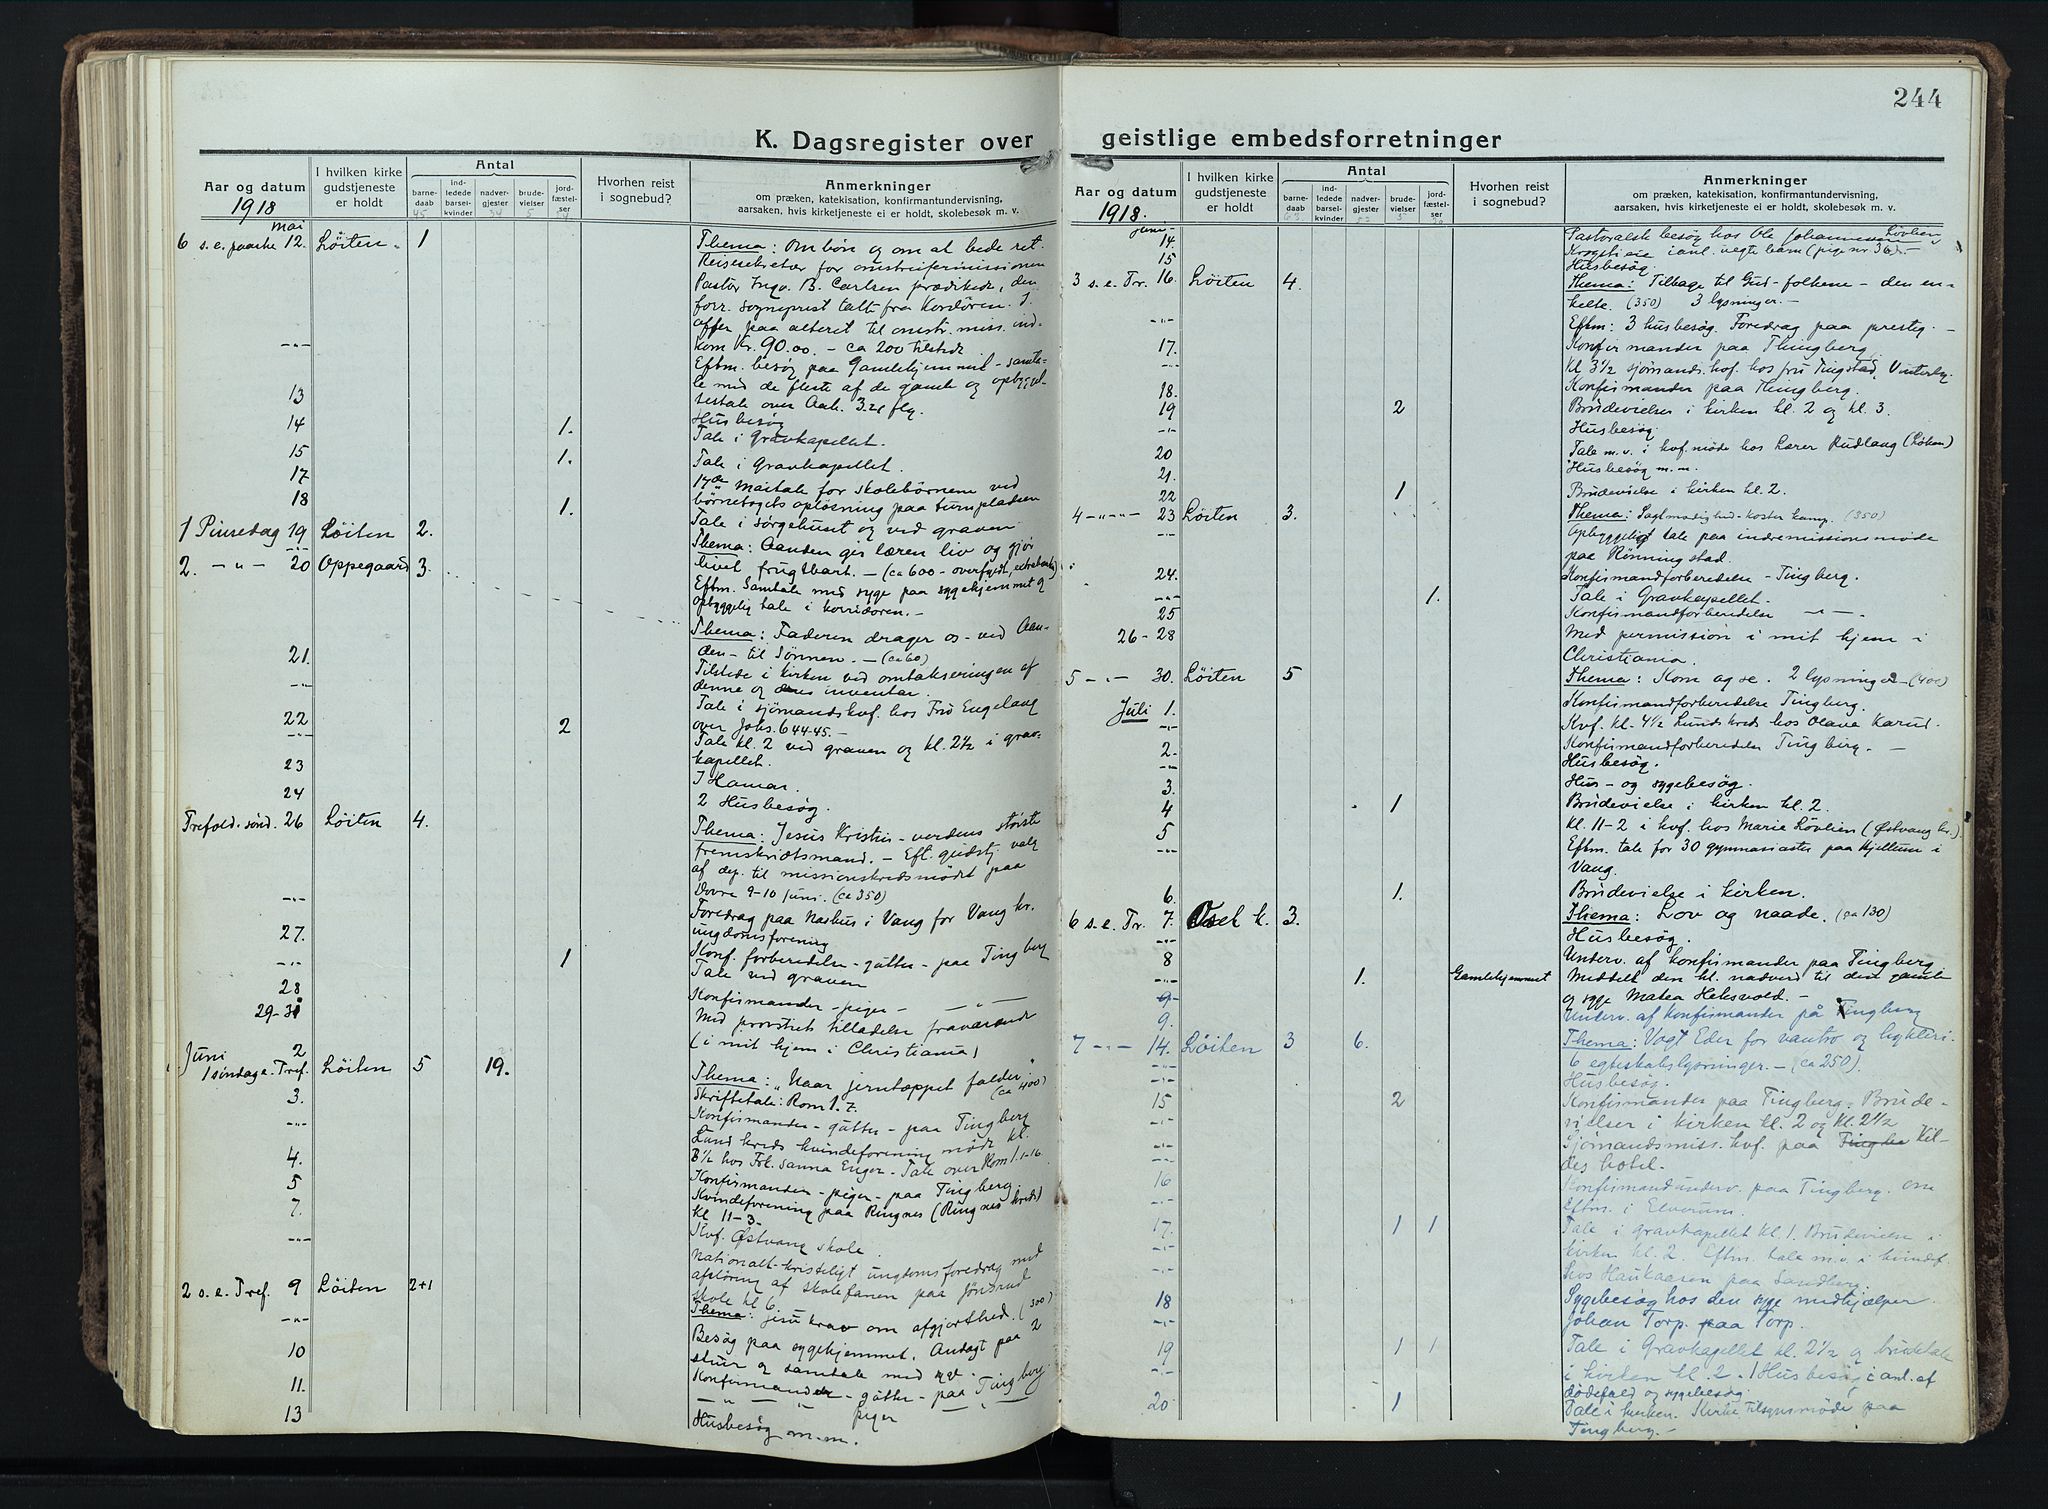 244
K. Dagsregister over geistlige embedsforretninger
Aar og datum
1918
I hvilken kirke gudstjeneste er holdt
Antal
barnedaab
indledede barselkvinder
nadvergjester
brudevielser
jordfæstelser
Hvorhen reist i sognebud?
Anmerkninger
om præken, katekisation, konfirmantundervisning,
aarsaken, hvis kirketjeneste ei er holdt, skolebesøk m. v.
mai
6 s. e. paaske 12. Løiten 1 Thema: Om bøn og om at bede ret.
Reisesekretær for omstreifermissionen
Pastor Ingv. B. Carlsen prædikede, den
forr. sogneprest talt fra Kordøren. I
offer paa alteret til omstr. miss. ind-
kom Kr. 90.00. – ca 200 tilstede
-"- Eftm. besøg paa Gamlehjemmet – samta-
le med de fleste af de gamle og opbyggel-
sestale over Aab. 3.21 flg.
13 Husbesøg
14 1. Tale i Gravkapellet.
15 1. Tale i Gravkapellet.
17 17de Maitale for skolebørnene ved
børnetogets opløsning paa turnpladsen
18 1. Tale i sørgehuset og ved graven
1 Pinsedag 19 Løiten 2. Thema: Aanden gir læren liv og gjør
livet frugtbart. – (ca 600 – overfyldt,
-"- Eftm. Samtale med syge paa sygehjemmet og
opbyggelig tale i korridoren. –
2. -"- 20 Oppegaard 3. Thema: Faderen drager os – ved Aan-
den – til Sønnen. – (ca 60)
21. Tilstede i kirken ved omtakseringen af
denne og dens inventar.
-"- Tale i sjømandskvf. hos Fru Engelaug
over Johs. 6 44-45. –
22 2 Tale kl. 2 ved graven og kl. 2½ i grav-
kapellet.
23 I Hamar.
24 2 Husbesøg.
Trefold. sønd. 26 Løiten 4. Thema: Jesus Kristus – verdens største
fremskridtsmand. – Eft. gudstj. valg
af dep. til missionskredsmødet paa
Dovre 9-10 Juni. (ca 350)
-"- Foredrag paa Narhus i Vang for Vang kr.
ungdomsforening
27. Konf. forberedelse – gutter – paa Tingberg
-"- 1 Tale ved graven
28 Konfirmander – piger – -"-
29-31 Med provstiets tilladelse fraværende
(i mit hjem i Christiania)
Juni 2
1 søndag e. Tref. Løiten 5 19. Thema: "Naar jerntæppet falder" (ca 400)
Skriftetale: Rom 1. 7.
3. Konfirmander – gutter – paa Tingberg
-"- Lund kreds kvindeforening møde kl.
3½ hos Frk. Sanna Enger – Tale over Rom 1. 1-16.
4. Konfirmander – piger – paa Tingberg.
5 Kvindeforening paa Ringnes (Ringnes kreds)
kl 11–3.
7. Kvf. Østvang skole.
-"- Nationalt-kristeligt ungdomsforedrag med
afsløring af skolefanen paa Jønsrud
skole kl 6.
2 s. e. Tref. 9 Løiten 2+1 Thema: Jesu krav om afgjorthed. (300)
-"- Besøg paa sygehjemmet. Andagt paa 2
stuer og samtale med syge.
10 Konfirmander – gutter – paa Tingberg
11. -"- piger -"-
13 Husbesøg m.m.
Aar og datum
1918.
I hvilken kirke gudstjeneste er holdt
Antal
barnedaab
indledede barselkvinder
nadvergjester
brudevielser
jordfæstelser
Hvorhen reist i sognebud?
Anmerkninger
om præken, katekisation, konfirmantundervisning,
aarsaken, hvis kirketjeneste ei er holdt, skolebesøk m. v.
Juni
14. Pastoralsk besøg hos Ole Johannessen Løvlien
i anl. uegte barn (pige nr. 36). –
15 Husbesøg
3 s. e. Tr. 16. Løiten 4. Thema: Tilbage til Gud – folkene – den en-
kelte. (350) 3 lysninger. –
-"- Eftm: 3 husbesøg. Foredrag paa presteg. –
17. Konfirmander paa Thingberg
-"- Kl 3½ sjømands. kvf. hos fru Tingstad, Vinterby.
18. Konfirmander paa Thingberg.
19 2 Brudevielser i kirken kl. 2 og kl. 3.
-"- Husbesøg.
20 Tale m.v. i kvf. møde hos Lærer Rudlang (Løken)
21. Husbesøg m.m.
22 1 Brudevielse i kirken kl. 2.
4 -"-"- 23 Løiten 3. Thema: Sagtmodighed – koster kamp. (350)
-"- Opbyggeligt tale paa indremissionsmøde
paa Rønningstad.
24. Konfirmandforberedelse – Tingberg.
-"- 1. Tale i Gravkapellet.
25 Konfirmandforberedelse -"-
26-28 Med permission i mit hjem i
Christiania.
5 -"- 30. Løiten 5 Thema: Kom og se. 2 lysninger – (400)
Juli 1. Konfirmandforberedelse Tingberg.
-"- Kvf. kl. 4½ Lunds kreds hos Olava Karud.
2. Konfirmandforberedelse Tingberg. –
-"- Husbesøg.
3. Hus- og sygebesøg.
4 1 Brudevielse i kirken kl. 2.
5 kl. 11–2 i kvf. hos Marie Løvlien (Østvang kr.).
-"- Eftm. tale for 30 gymnasiaster paa Kjellum i
Vang.
6. 1. Brudevielse i kirken.
6 s. e. Tr. 7. Oset k. 3. Thema: Lov og naade. (ca 130)
-"- Husbesøg.
8 Underv. af konfirmander paa Tingberg
-"- 1. Gamlehjemmet Meddelt den hl. nadverd til den gamle
og syge Matea Heksvold. –
9. Underv. af konfirmander på Tingberg
7 -"- 14. Løiten 3 6. Thema: Vogt Eder for vantro og hykleri.
6 egteskabslysninger. – (ca 250).
-"- Husbesøg.
15 2 Konfirmander paa Tingberg. Brude-
vielser i kirken kl. 2 og kl. 2½
-"- Sjømandsmiss. kvf. paa Tingbe Kil-
des hotel.
16 Konfirmandunderv. paa Tingberg. om
-"- Eftm. i Elverum.
17. 1 1 Tale i gravkapellet kl. 1. Brudevielse i
-"- kirken kl. 2. Eftm. tale m.v. i kvindef.
-"- hos Haukaasen paa Sandberg.
18 Sygebesøg hos den syge medhjælper
-"- Johan Torp paa Torp.
19 1 1 Tale i Gravkapellet kl. 2½ og brudetale
-"- i kirken kl. 2. 1 Husbesøg i anl. af
dødsfald og sygebesøg.
20 1 Tale i kirken. Kirketilsynsmøde paa
Tingberg. –